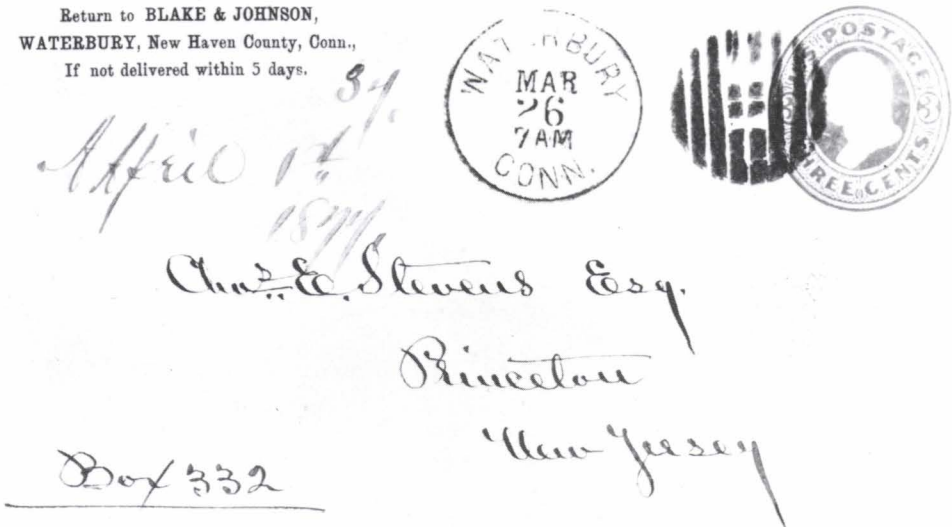 Return to BLAKE & JOHNSON,
WATERBURY, New Haven County, Conn.,
If not delivered within 5 days.
April 1st
1877
WATERBURY
MAR
26
7AM
CONN.
POSTAGE
THREE CENTS
Chas. E. Stevens Esq.
Princeton
New Jersey
Box 332